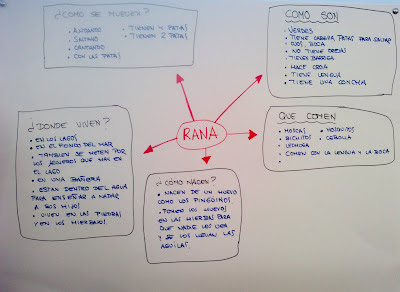 ¿COMO SE MUEVEN?
• ANDANDO
• SALTANDO
• CANTANDO
• CON LAS PATAS
• TIENEN 4 PATAS
• TIENEN 2 PATAS
COMO SON
• VERDES
• TIENE CABEZA, PATAS PARA SALTAR
• OJOS, BOCA
• NO TIENE OREJAS
• TIENEN BARRIGA
• HACE CROA
• TIENE LENGUA
• TIENE UNA CONCHA
RANA
¿DONDE VIVEN?
• EN LOS LAGOS
• EN EL FONDO DEL MAR
• TAMBIEN SE METEN POR
LOS AGUJEROS QUE HAY EN
EL LAGO
• EN UNA BAÑERA
• ESTAN DENTRO DEL AGUA
PARA ENSEÑAR A NADAR
A SUS HIJOS
• VIVEN EN LAS PIEDRAS
Y EN LOS HIERBAJOS
¿CÓMO NACEN?
• NACEN DE UN HUEVO
COMO LOS PINGÜINOS
• PONEN LOS HUEVOS
EN LAS HIERBAS PARA
QUE NADIE LOS VEA
Y SE LOS LLEVAN LAS
AGUILAS
QUE COMEN
• MOSCAS
• BICHITOS
• LECHUGA
• MOSQUITOS
• CEBOLLA
• COMEN CON LA LENGUA Y LA BOCA